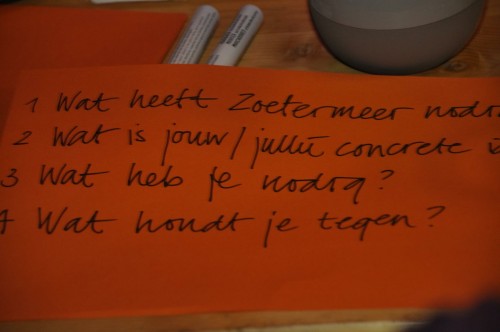 1 Wat heeft Zoetermeer
2 Wat is jouw/jullie concrete
3 Wat heb je nodig?
4 Wat houdt je tegen?